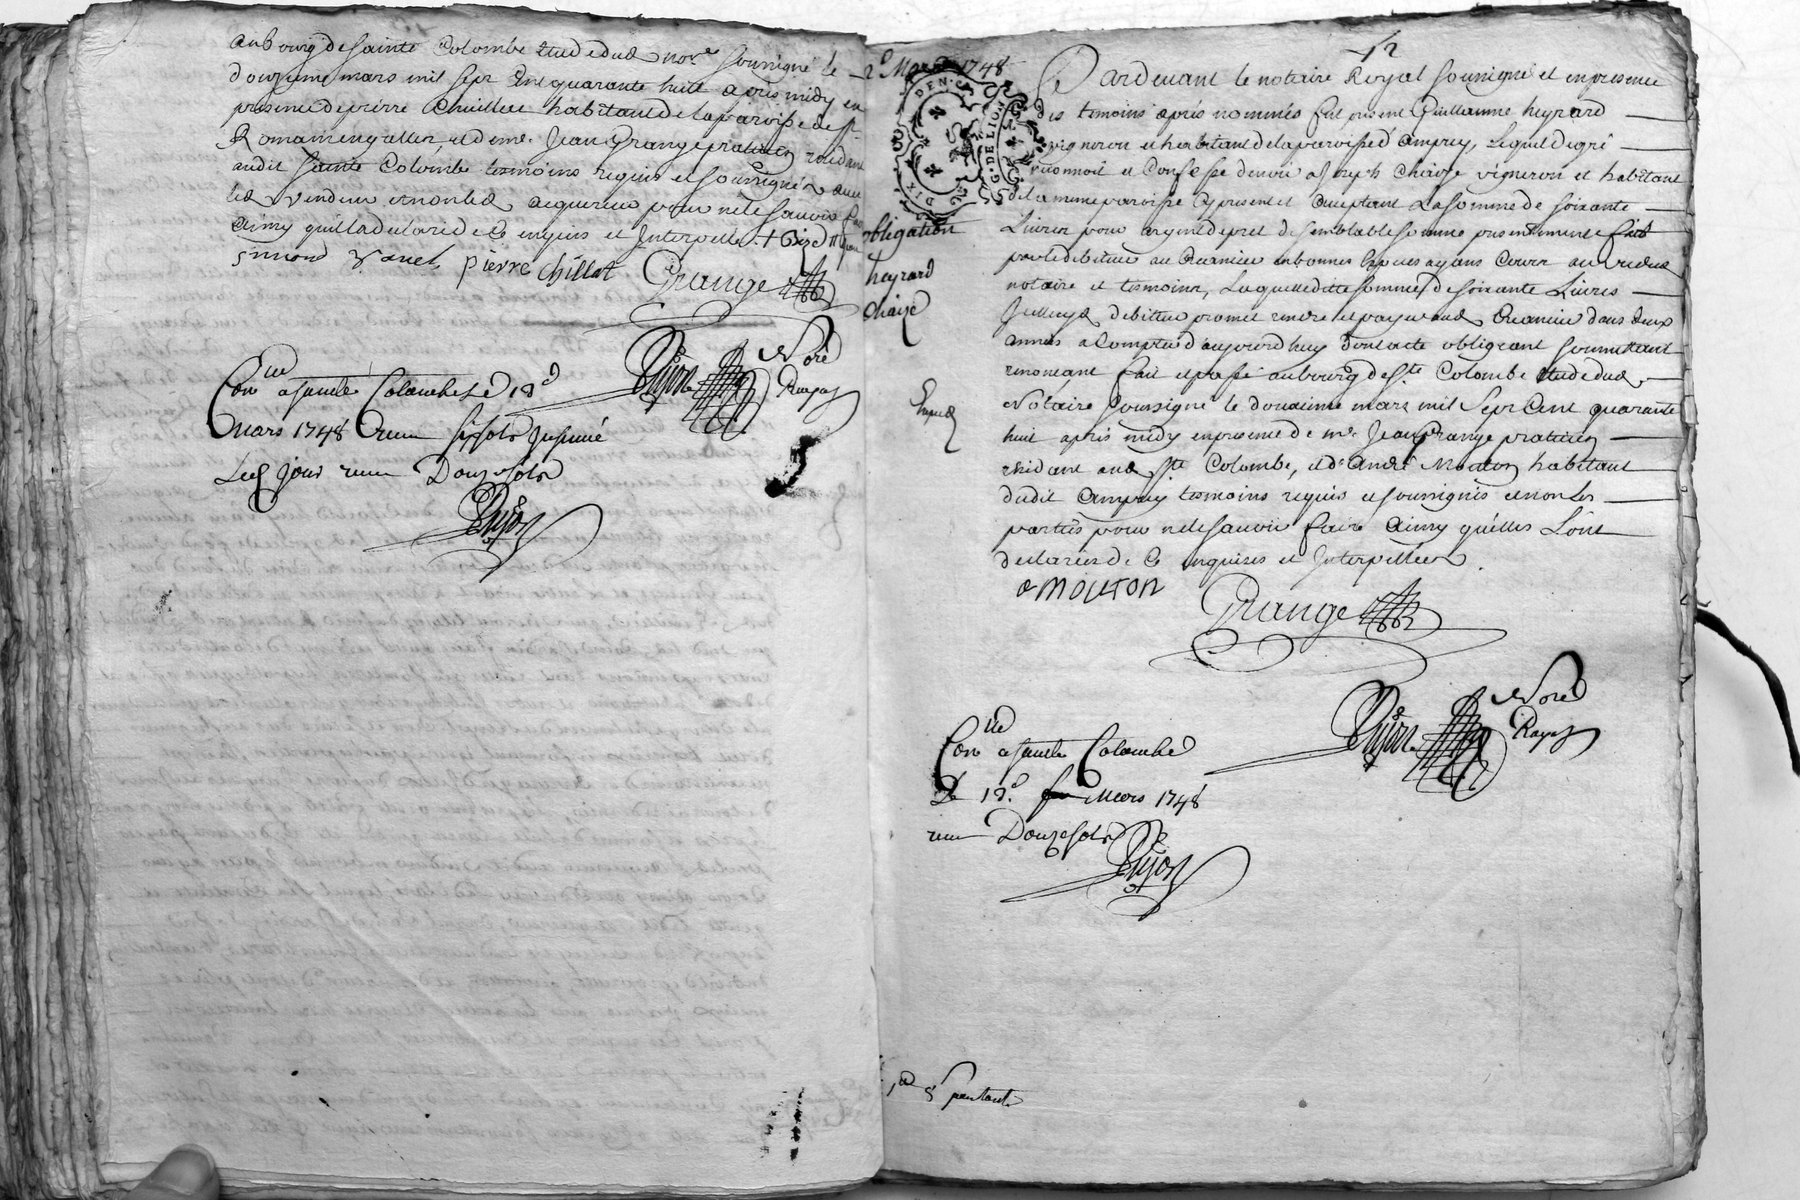 au bourg de sainte Colombe Etude dud nore soussigné le
douzieme mars mil sept Cent quarante huit apres midy en
presence de pierre Chuillet habitant de la paroisse de st
Romain en gallier, et de me. Jean Grange praticien residant
audit Sainte Colombe temoins requis et soussignés avec
led vendeur et non led acquereur pour ne le sçavoir faire
ainsy quil la déclaré de ce enquis et Interpellé
pierre chillat Grange
Conlle a sainte Colombe Le 12e
mars 1748 receu six sols
Led jour receu Douze sols
Dujon Nore Royal
Dujon
12e Mars 1748
GEN. DE LION
DIX DEN.
obligation
heyrard
chaize
Exped
12
Pardevant le notaire Royal soussigné et en presence
des temoins après nommés fut present Guillaume heyrard
vigneron et habitant de la paroisse d'Ampuy, Lequel de gré
reconnoit et Confesse devoir a Joseph Chaize vigneron et habitant
de la meme paroisse cy present et acceptant La somme de soixante
Livres pour argent de pret de semblable somme presentement fait
par le debiteur au Creancier en bonnes Especes ayans Cours au vu dud
notaire et temoins, Laquelle ditte somme de soixante Livres
Led debiteur promet rendre et payer aud Creancier dans deux
années a Compter d'aujourd'huy dont acte obligeant soumettant
renonceant fait et passé au bourg de Ste Colombe Etude dud
Notaire soussigné le douzieme mars mil Sept Cent quarante
huit après midy en presence de me Jean Grange praticien
residant aud Ste Colombe, et d'André Mouton habitant
dudit Ampuy temoins requis et soussignés et non les
parties pour ne le sçavoir faire ainsy qu'elles L'ont
declarées de Ce enquises et Interpellées
a mouton
Grange
Dujon Nore Royal
Conlle a sainte Colombe
Le 12e Mars 1748
receu Douze sols
Dujon